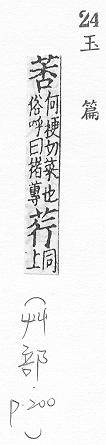 24
玉篇
莕何梗切菜也俗呼曰猪蓴荇同上
(艸部. p.200)